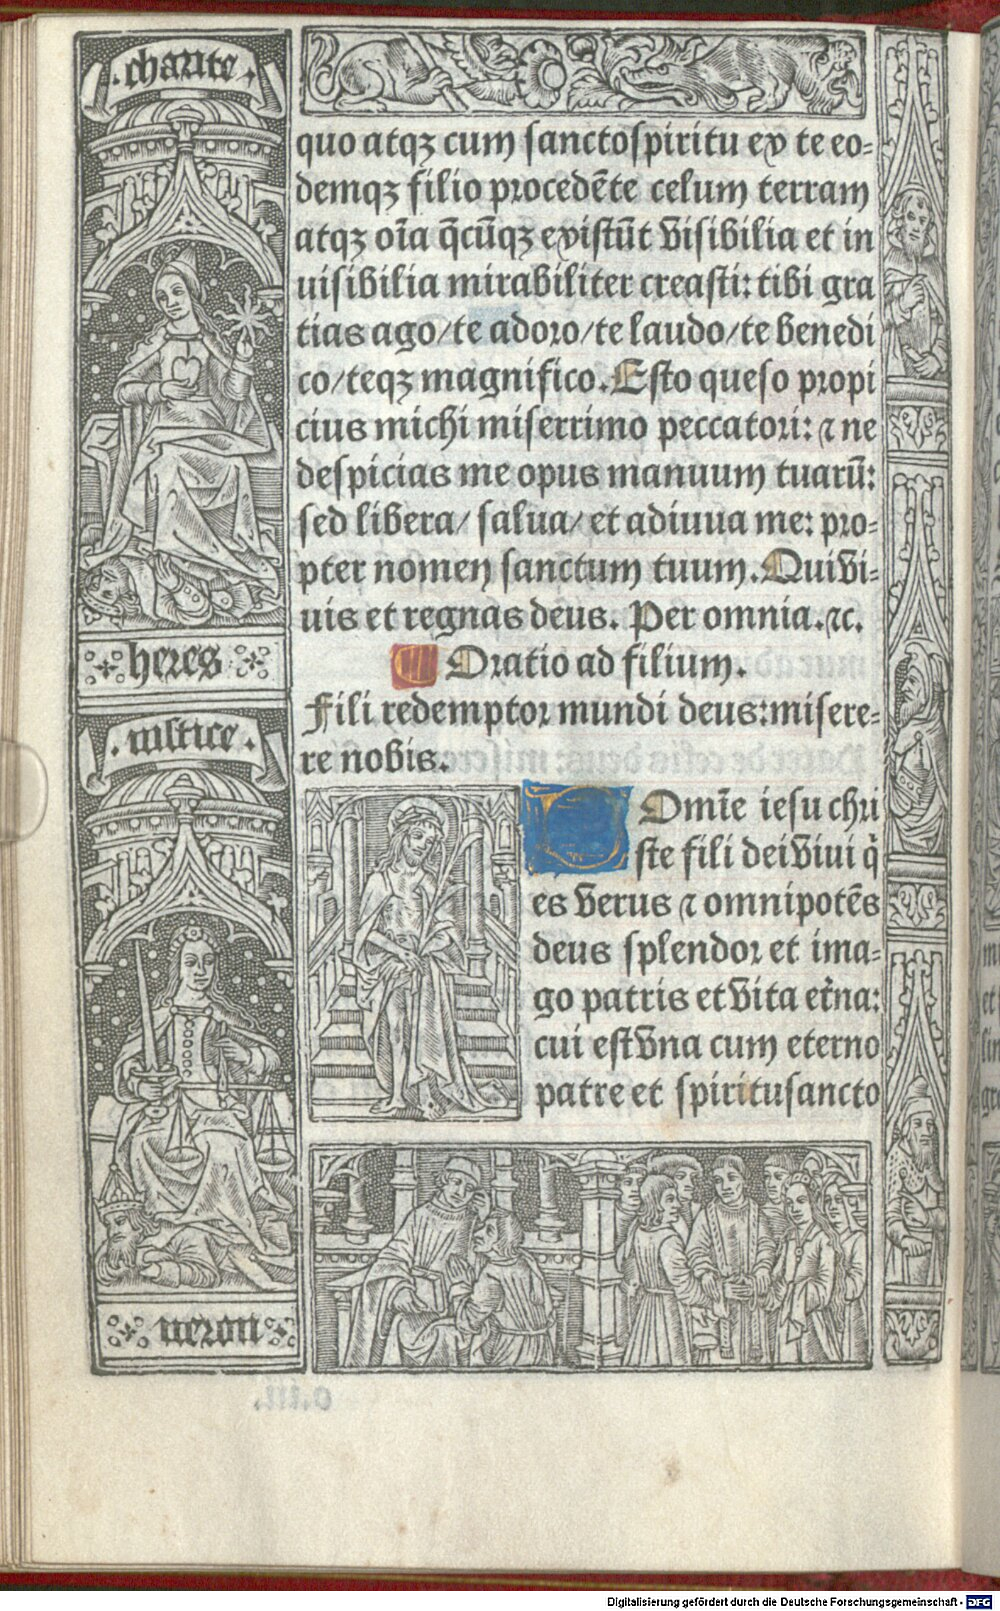 .charite.
heres
.iustice.
neron
quo atqꝫ cum sanctospiritu ex te eo-
demqꝫ filio procedēte celum terram
atqꝫ oīa q̄cūqꝫ existūt visibilia et in
uisibilia mirabiliter creasti: tibi gra
tias ago/te adoro/te laudo/te benedi
co/teqꝫ magnifico. Esto queso propi
cius michi miserrimo peccatori: ⁊ ne
despicias me opus manuum tuarū:
sed libera/ salua/ et adiuua me: pro-
pter nomen sanctum tuum. Qui vi-
uis et regnas deus. Per omnia. ⁊c.
Oratio ad filium.
Fili redemptor mundi deus: misere-
re nobis.
Domīe iesu chri
ste fili dei viui q̇
es verus ⁊ omnipotēs
deus splendor et ima-
go patris et vita et̄na:
cui est vna cum eterno
patre et spiritusancto
c.iii.
Digitalisierung gefördert durch die Deutsche Forschungsgemeinschaft - DFG